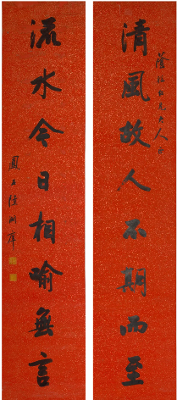 清風故人不期而至
流水今日相喻無言